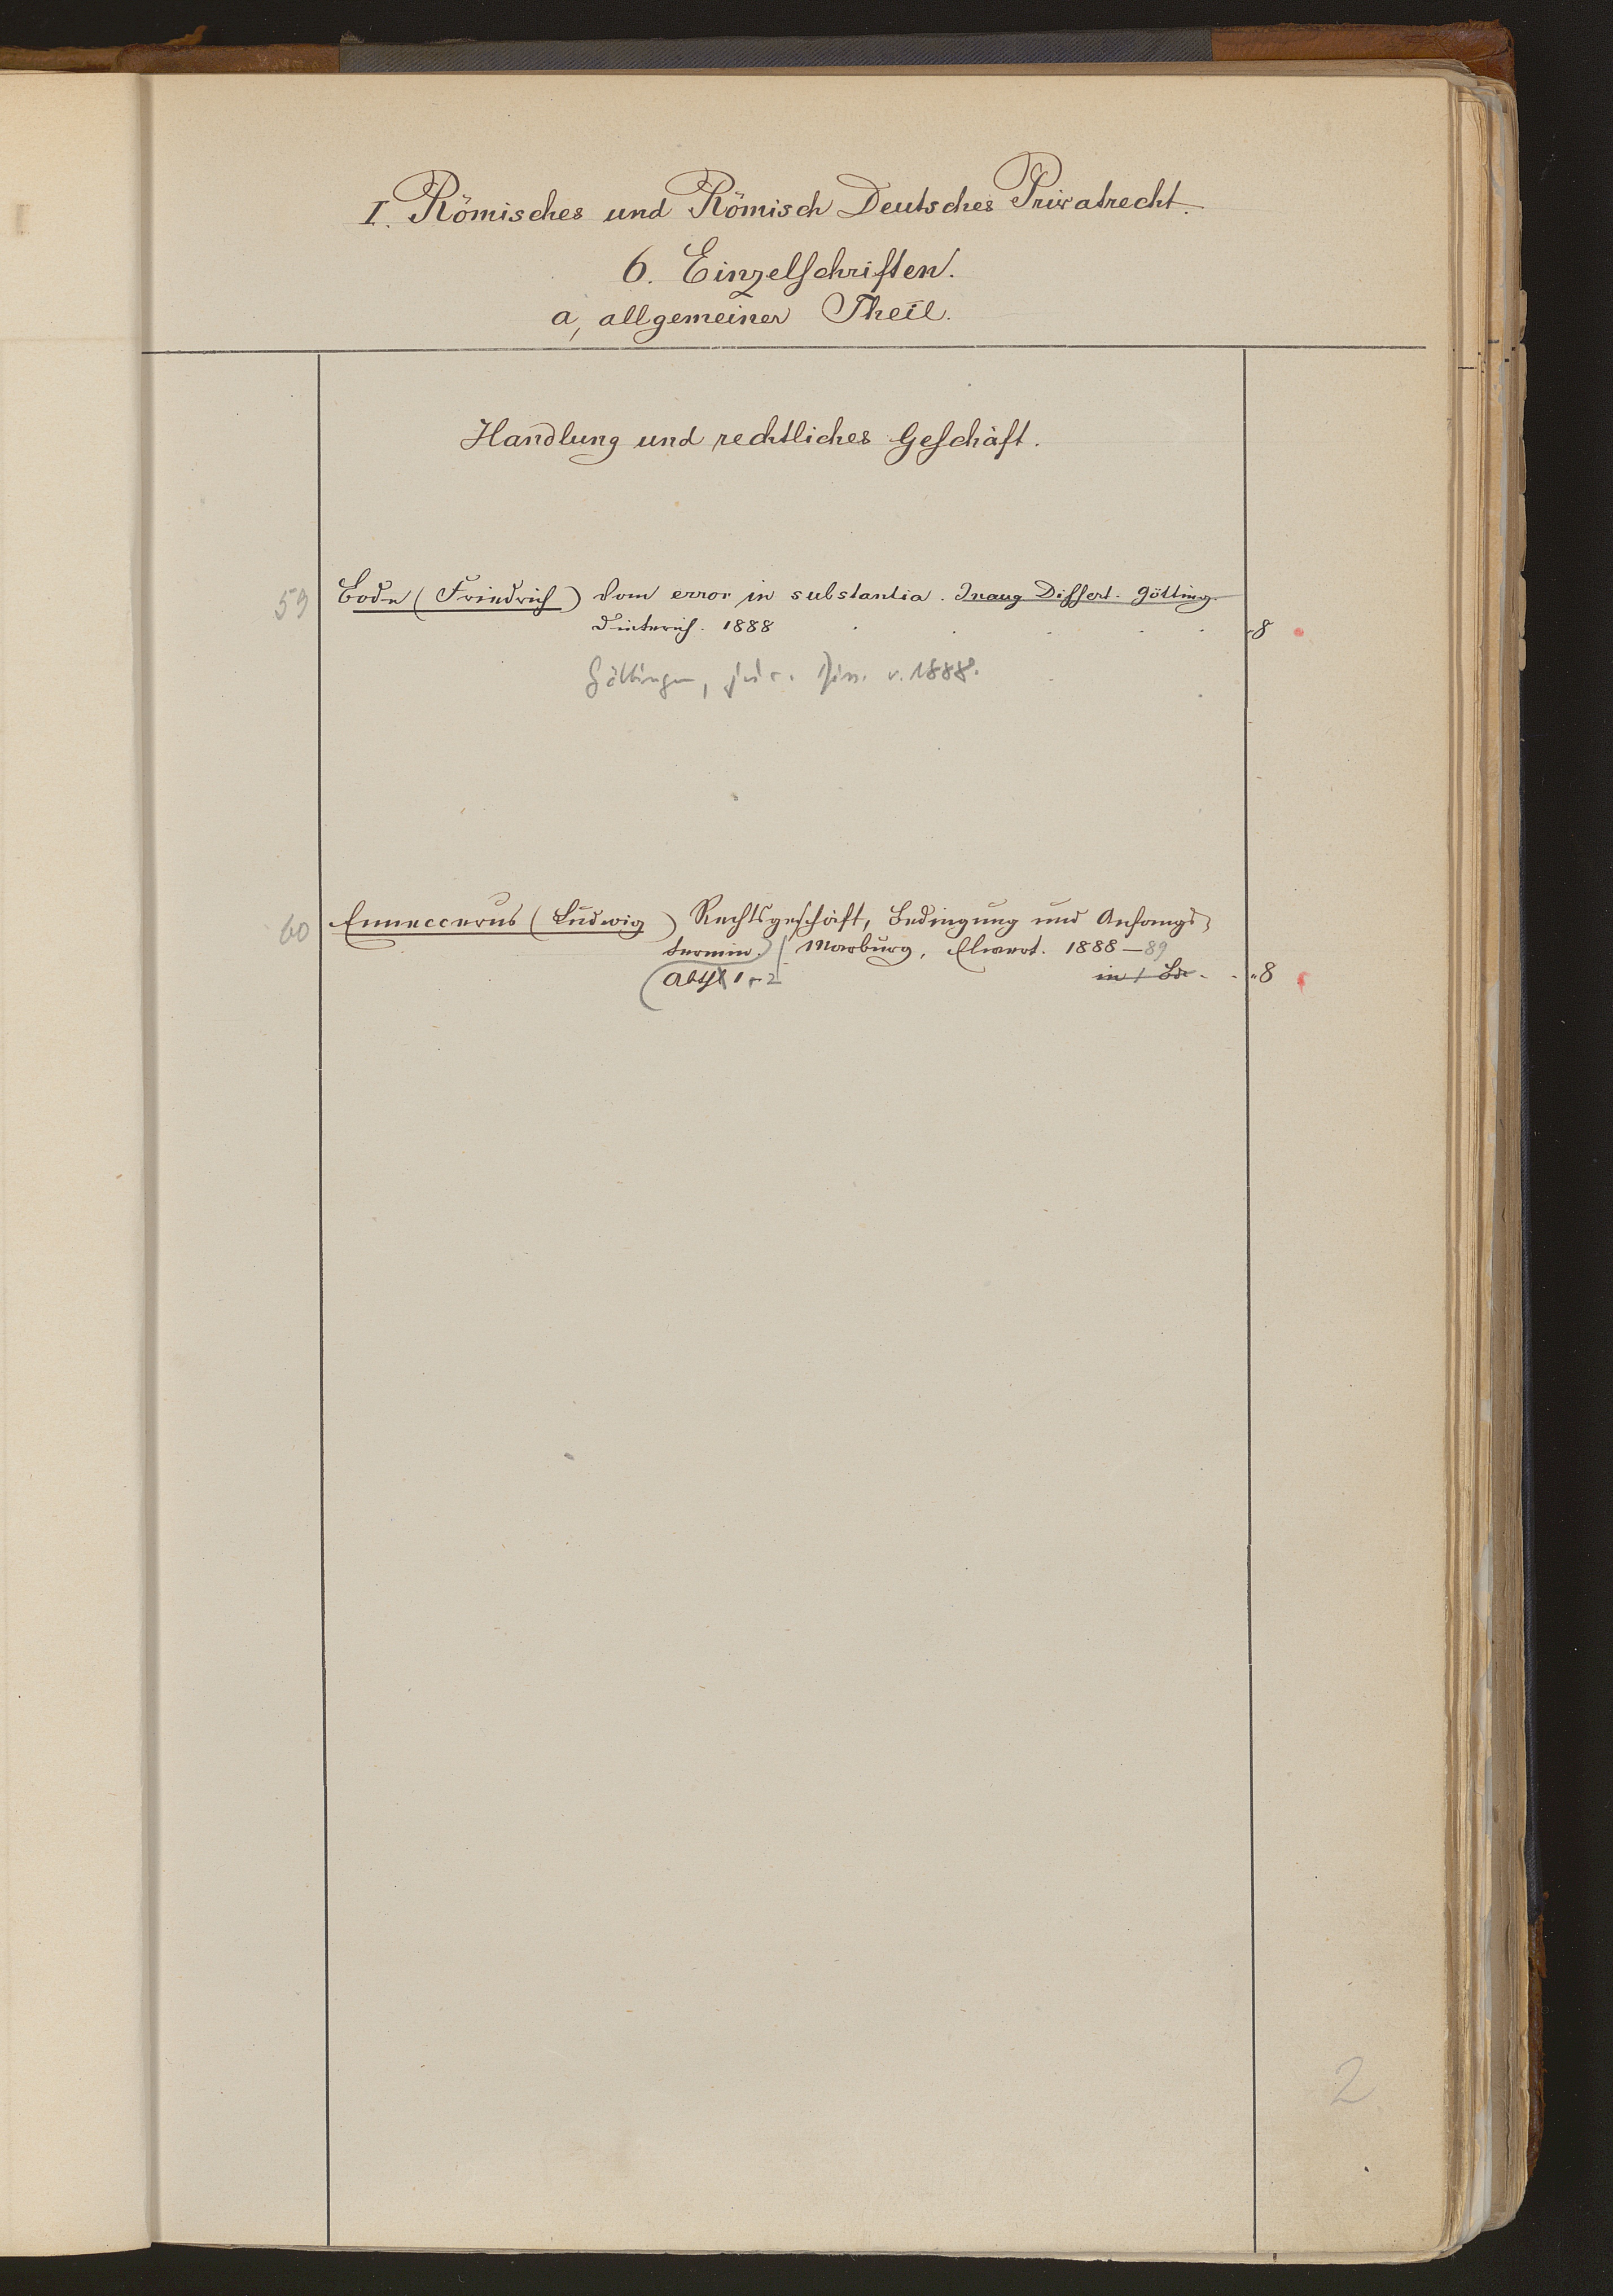 I. Römisches und Römisch Deutsches Privatrecht.
6. Einzelschriften.
a, allgemeiner Theil.
Handlung und rechtliches Geschäft.
59 Bode (Friedrich) Vom error in substantia. Inaug Dissert. Götting.
Dieterich. 1888 . . . . . 8
Göttingen, jur. Diss. v. 1888.
60 Enneccerus (Ludwig) Rechtsgeschäft, Bedingung und Anfangs-
termin. Marburg, Elwert. 1888–89
Abth 1 + 2 in 1 Bde . . "8
2